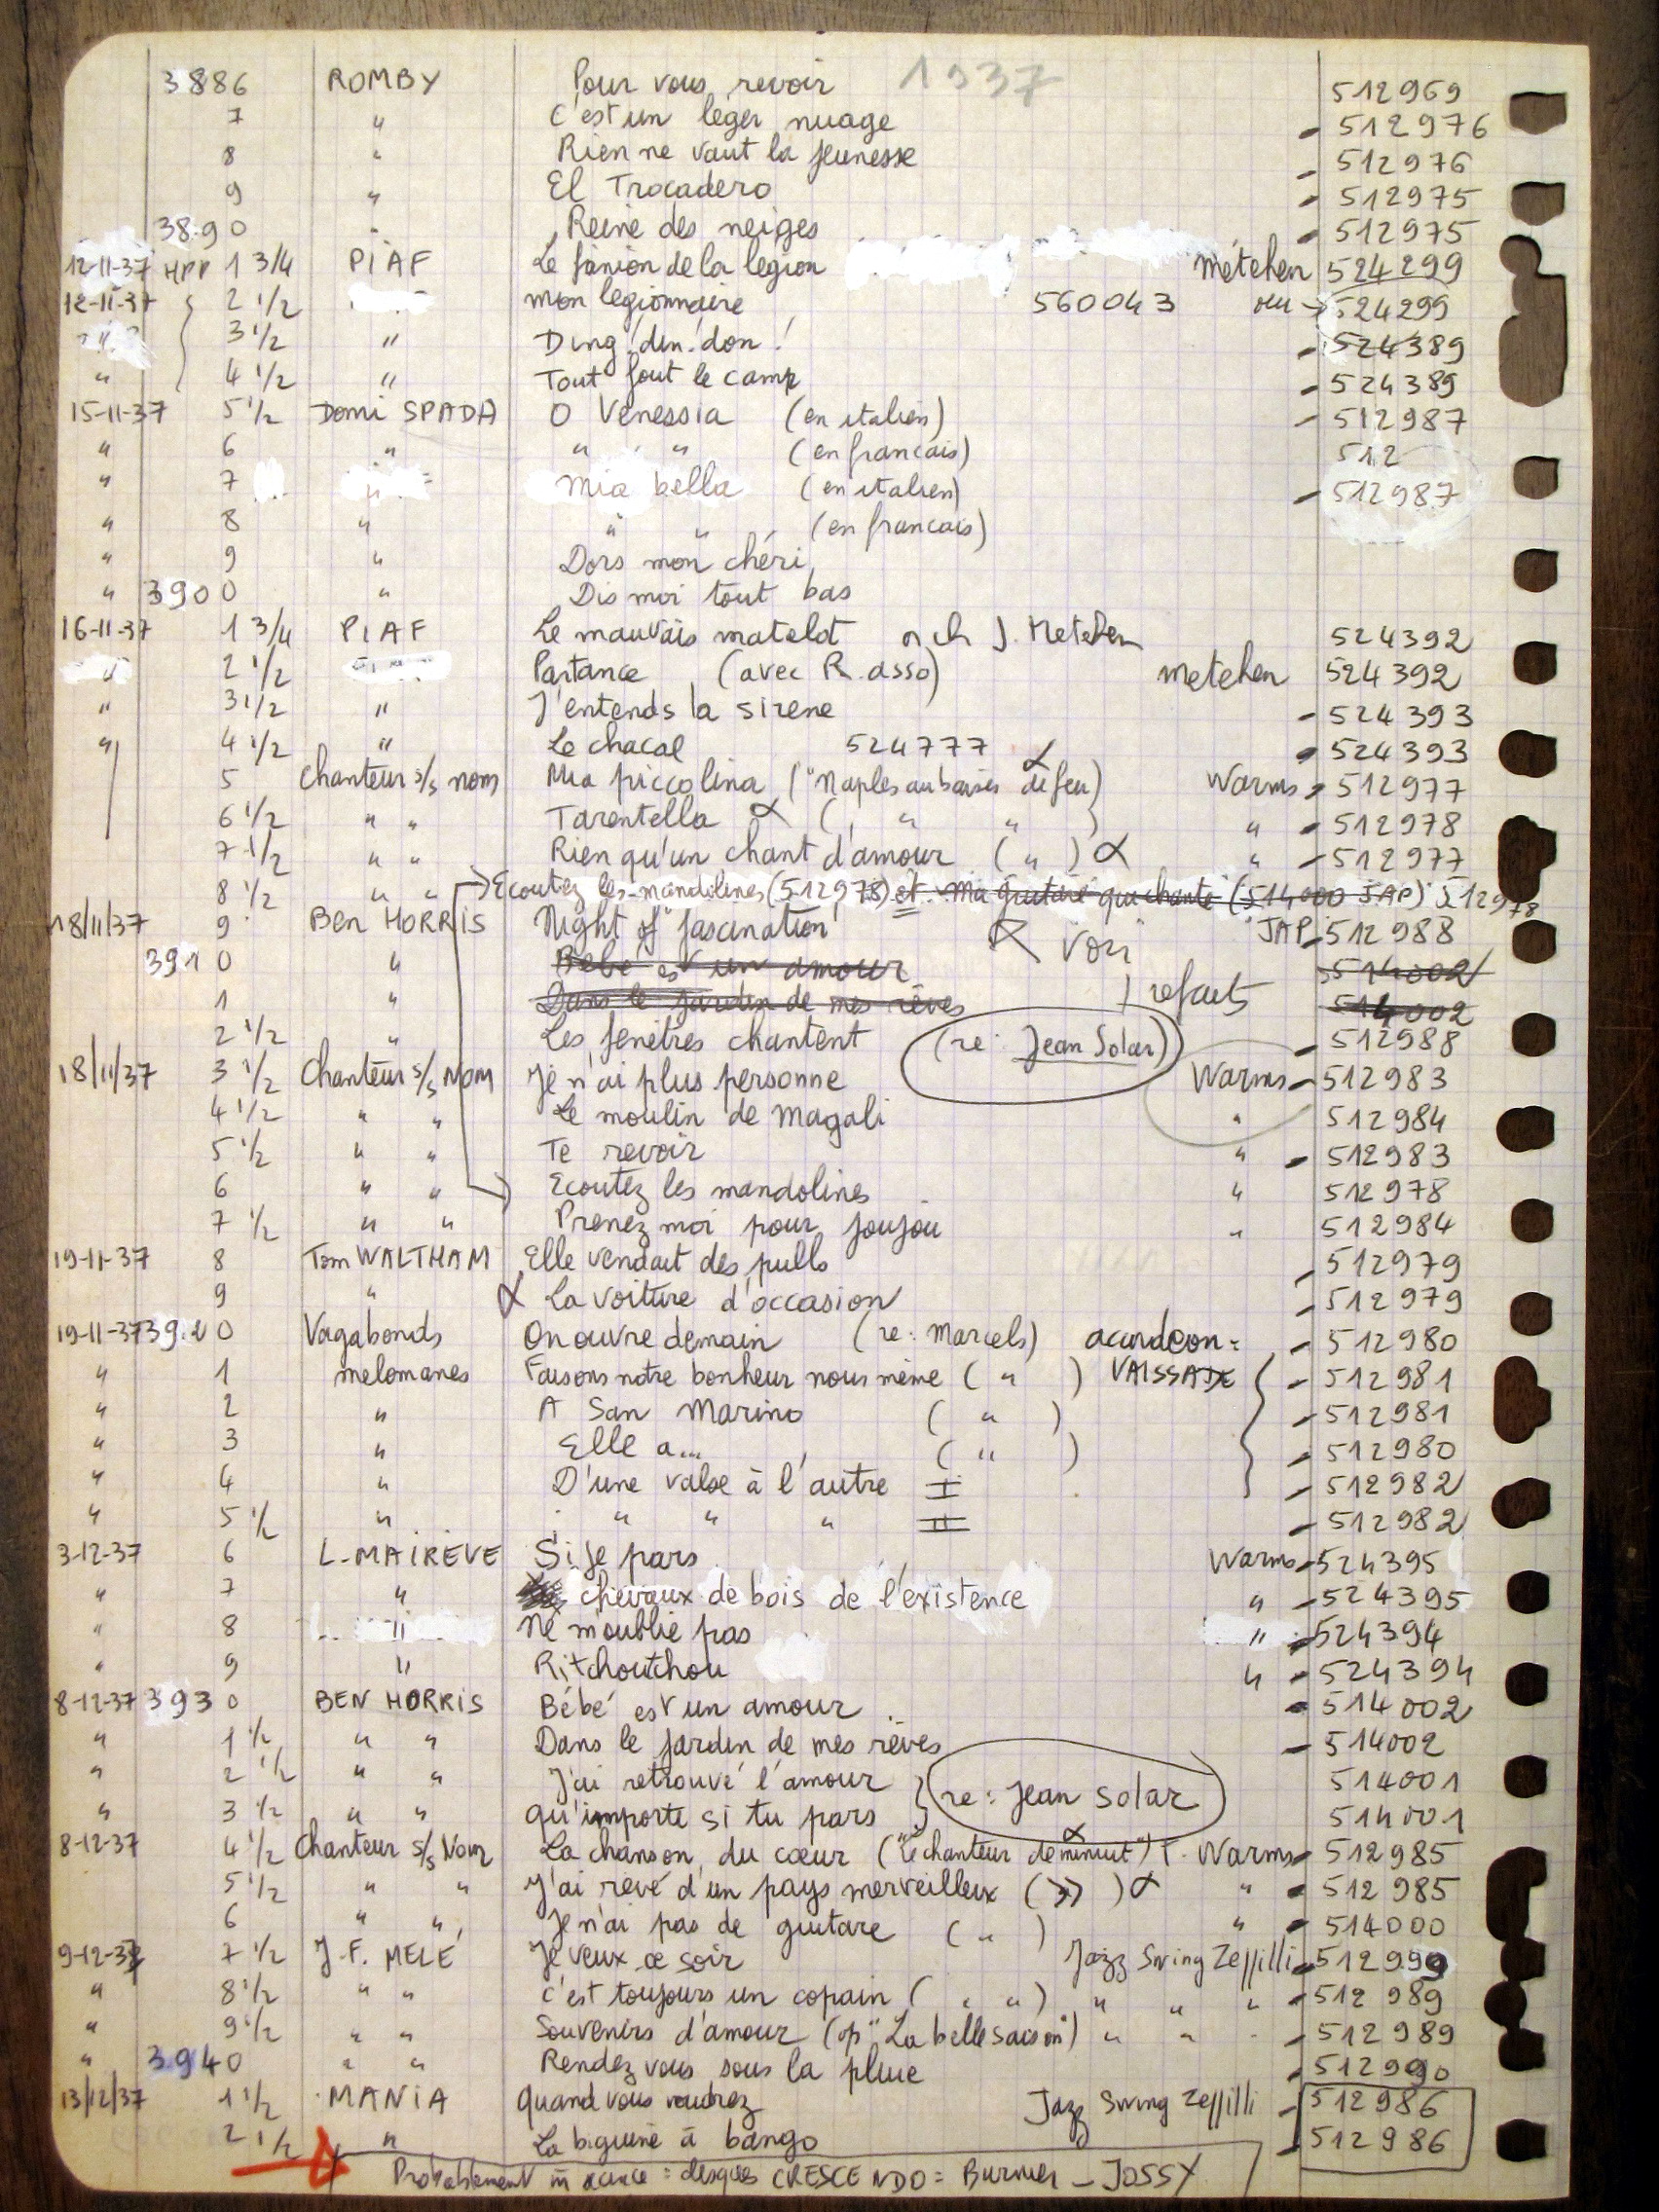 3886 ROMBY Pour vous revoir 1937 512969
7 " C'est un léger nuage - 512976
8 " Rien ne vaut la jeunesse - 512976
9 " El Trocadero - 512975
3890 " Reine des neiges - 512975
12-11-37 HPP 1 3/4 PIAF Le fanion de la légion métehen 524299
12-11-37 2 1/2 mon legionnaire 560043 ou → 524299
3 1/2 " Ding! din! don! - 524389
" 4 1/2 " Tout fout le camp - 524389
15-11-37 5 1/2 Domi SPADA O Venessia (en italien) - 512987
" 6 " " " (en francais) 512
" 7 " Mia bella (en italien) - 512987
" 8 " " " (en francais)
" 9 " Dors mon chéri
" 3900 " Dis moi tout bas
16-11-37 1 3/4 PIAF Le mauvais matelot orch J. Metehen 524392
" 2 1/2 Partance (avec R. asso) metehen 524392
" 3 1/2 " J'entends la sirene - 524393
" 4 1/2 " Le chacal 524777 - 524393
5 Chanteur s/s nom Mia piccolina ("Naples au baisers de feu) Warms - 512977
6 1/2 " " Tarentella α ( " " ) " - 512978
7 1/2 " " Rien qu'un chant d'amour ( " ) α " - 512977
8 1/2 " " → Ecoutez les mandolines (512978) et Ma guitare qui chante (514000 JAP) 512978
18/11/37 9 Ben HORRIS Night of fascination α voir JAP - 512988
3910 " Bébé est un amour 514002
1 " Dans le jardin de mes rêves refaits 514002
2 1/2 " Les fenêtres chantent (re: Jean Solar) - 512988
18/11/37 3 1/2 Chanteur s/s Nom Je n'ai plus personne Warms - 512983
4 1/2 " " Le moulin de Magali " 512984
5 1/2 " " Te revoir " - 512983
6 " " Ecoutez les mandolines " 512978
7 1/2 " " Prenez moi pour joujou " 512984
19-11-37 8 Tom WALTHAM Elle vendait des pulls - 512979
9 " α La voiture d'occasion - 512979
19-11-37 3920 Vagabonds On ouvre demain (re: Marcels) acordeon: - 512980
" 1 melomanes Faisons notre bonheur nous même ( " ) VAISSADE - 512981
" 2 " A San Marino ( " ) - 512981
" 3 " Elle a... ( " ) - 512980
" 4 " D'une valse à l'autre I - 512982
" 5 1/2 " " " " II - 512982
3-12-37 6 L. MAIRÈVE Si je pars Warms - 524395
" 7 " chevaux de bois de l'existence " - 524395
" 8 " Ne m'oublie pas " - 524394
" 9 " Ritchoutchou " - 524394
8-12-37 3930 BEN HORRIS Bébé est un amour - 514002
" 1 1/2 " " Dans le jardin de mes rêves - 514002
" 2 1/2 " " J'ai retrouvé l'amour } re: Jean Solar 514001
" 3 1/2 " " qu'importe si tu pars 514001
8-12-37 4 1/2 Chanteur s/s Nom La chanson du cœur ("Le chanteur de minuit") F. Warms - 512985
5 1/2 " " J'ai revé d'un pays merveilleux ( » ) α " - 512985
6 " " Je n'ai pas de guitare ( " ) " - 514000
9-12-37 7 1/2 J.F. MELÉ Je veux ce soir Jazz Swing Zeppilli - 512999
" 8 1/2 " " C'est toujours un copain ( " " ) " " " - 512989
" 9 1/2 " " Souvenirs d'amour (op "La belle saison") " " " - 512989
" 3940 " " Rendez vous sous la pluie - 512990
13/12/37 1 1/2 MANIA Quand vous voudrez Jazz Swing Zeppilli - 512986
2 1/2 " La biguine à bango - 512986
Probablement m disques CRESCENDO = Burnier - JOSSY